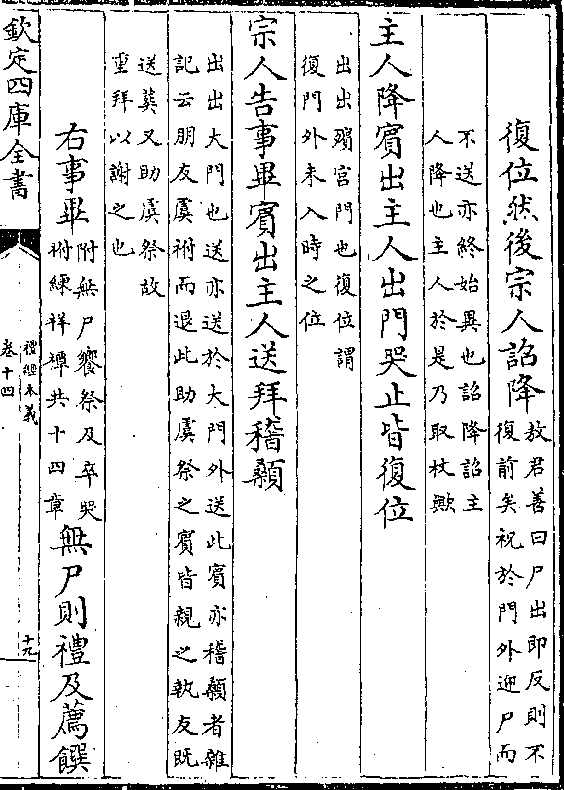 復位然後宗人詔降敖君善曰尸出即反則不
復前矣祝於門外迎尸而
不送亦終始異也詔降詔主
人降也主人於是乃取杖歟
主人降賓出主人出門哭止皆復位
出出殯宫門也復位謂
復門外未入時之位
宗人告事畢賓出主人送拜稽顙
出出大門也送亦送於大門外送此賓亦稽顙者雜
記云朋友虞祔而退此助虞祭之賓皆親之執友既
送葬又助虞祭故
重拜以謝之也
右事畢附無尸饗祭及卒哭
祔練祥禫共十四章
無尸則禮及薦饌
欽定四庫全書
禮經本義
卷十四
十九